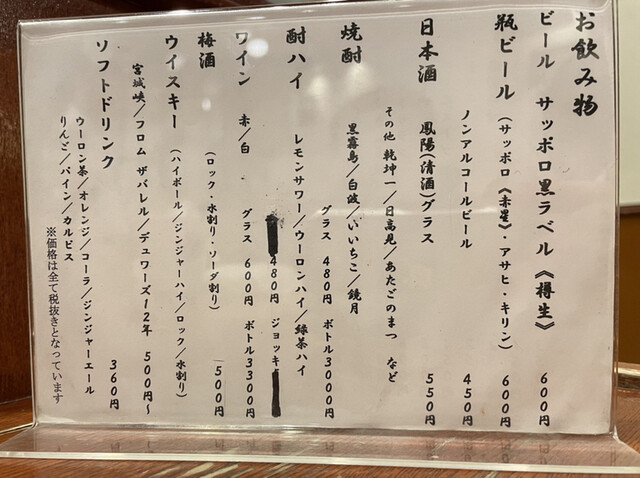 お飲み物
ビール サッポロ黒ラベル《樽生》 600円
瓶ビール (サッポロ《赤星》・アサヒ・キリン) 600円
ノンアルコールビール 450円
日本酒 鳳陽(清酒)グラス 550円
その他 乾坤一/日高見/あたごのまつ など
焼酎 グラス 480円 ボトル3000円
黒霧島/白波/いいちこ/鏡月
酎ハイ レモンサワー/ウーロンハイ/緑茶ハイ
480円 ジョッキ
ワイン 赤/白 グラス 600円 ボトル3300円
梅酒 (ロック・水割り・ソーダ割り) 500円
ウイスキー (ハイボール/ジンジャーハイ/ロック/水割り)
宮城峡/フロム ザバレル/デュワーズ12年 500円~
ソフトドリンク 360円
ウーロン茶/オレンジ/コーラ/ジンジャーエール
りんご/パイン/カルピス
※価格は全て税抜きとなっています